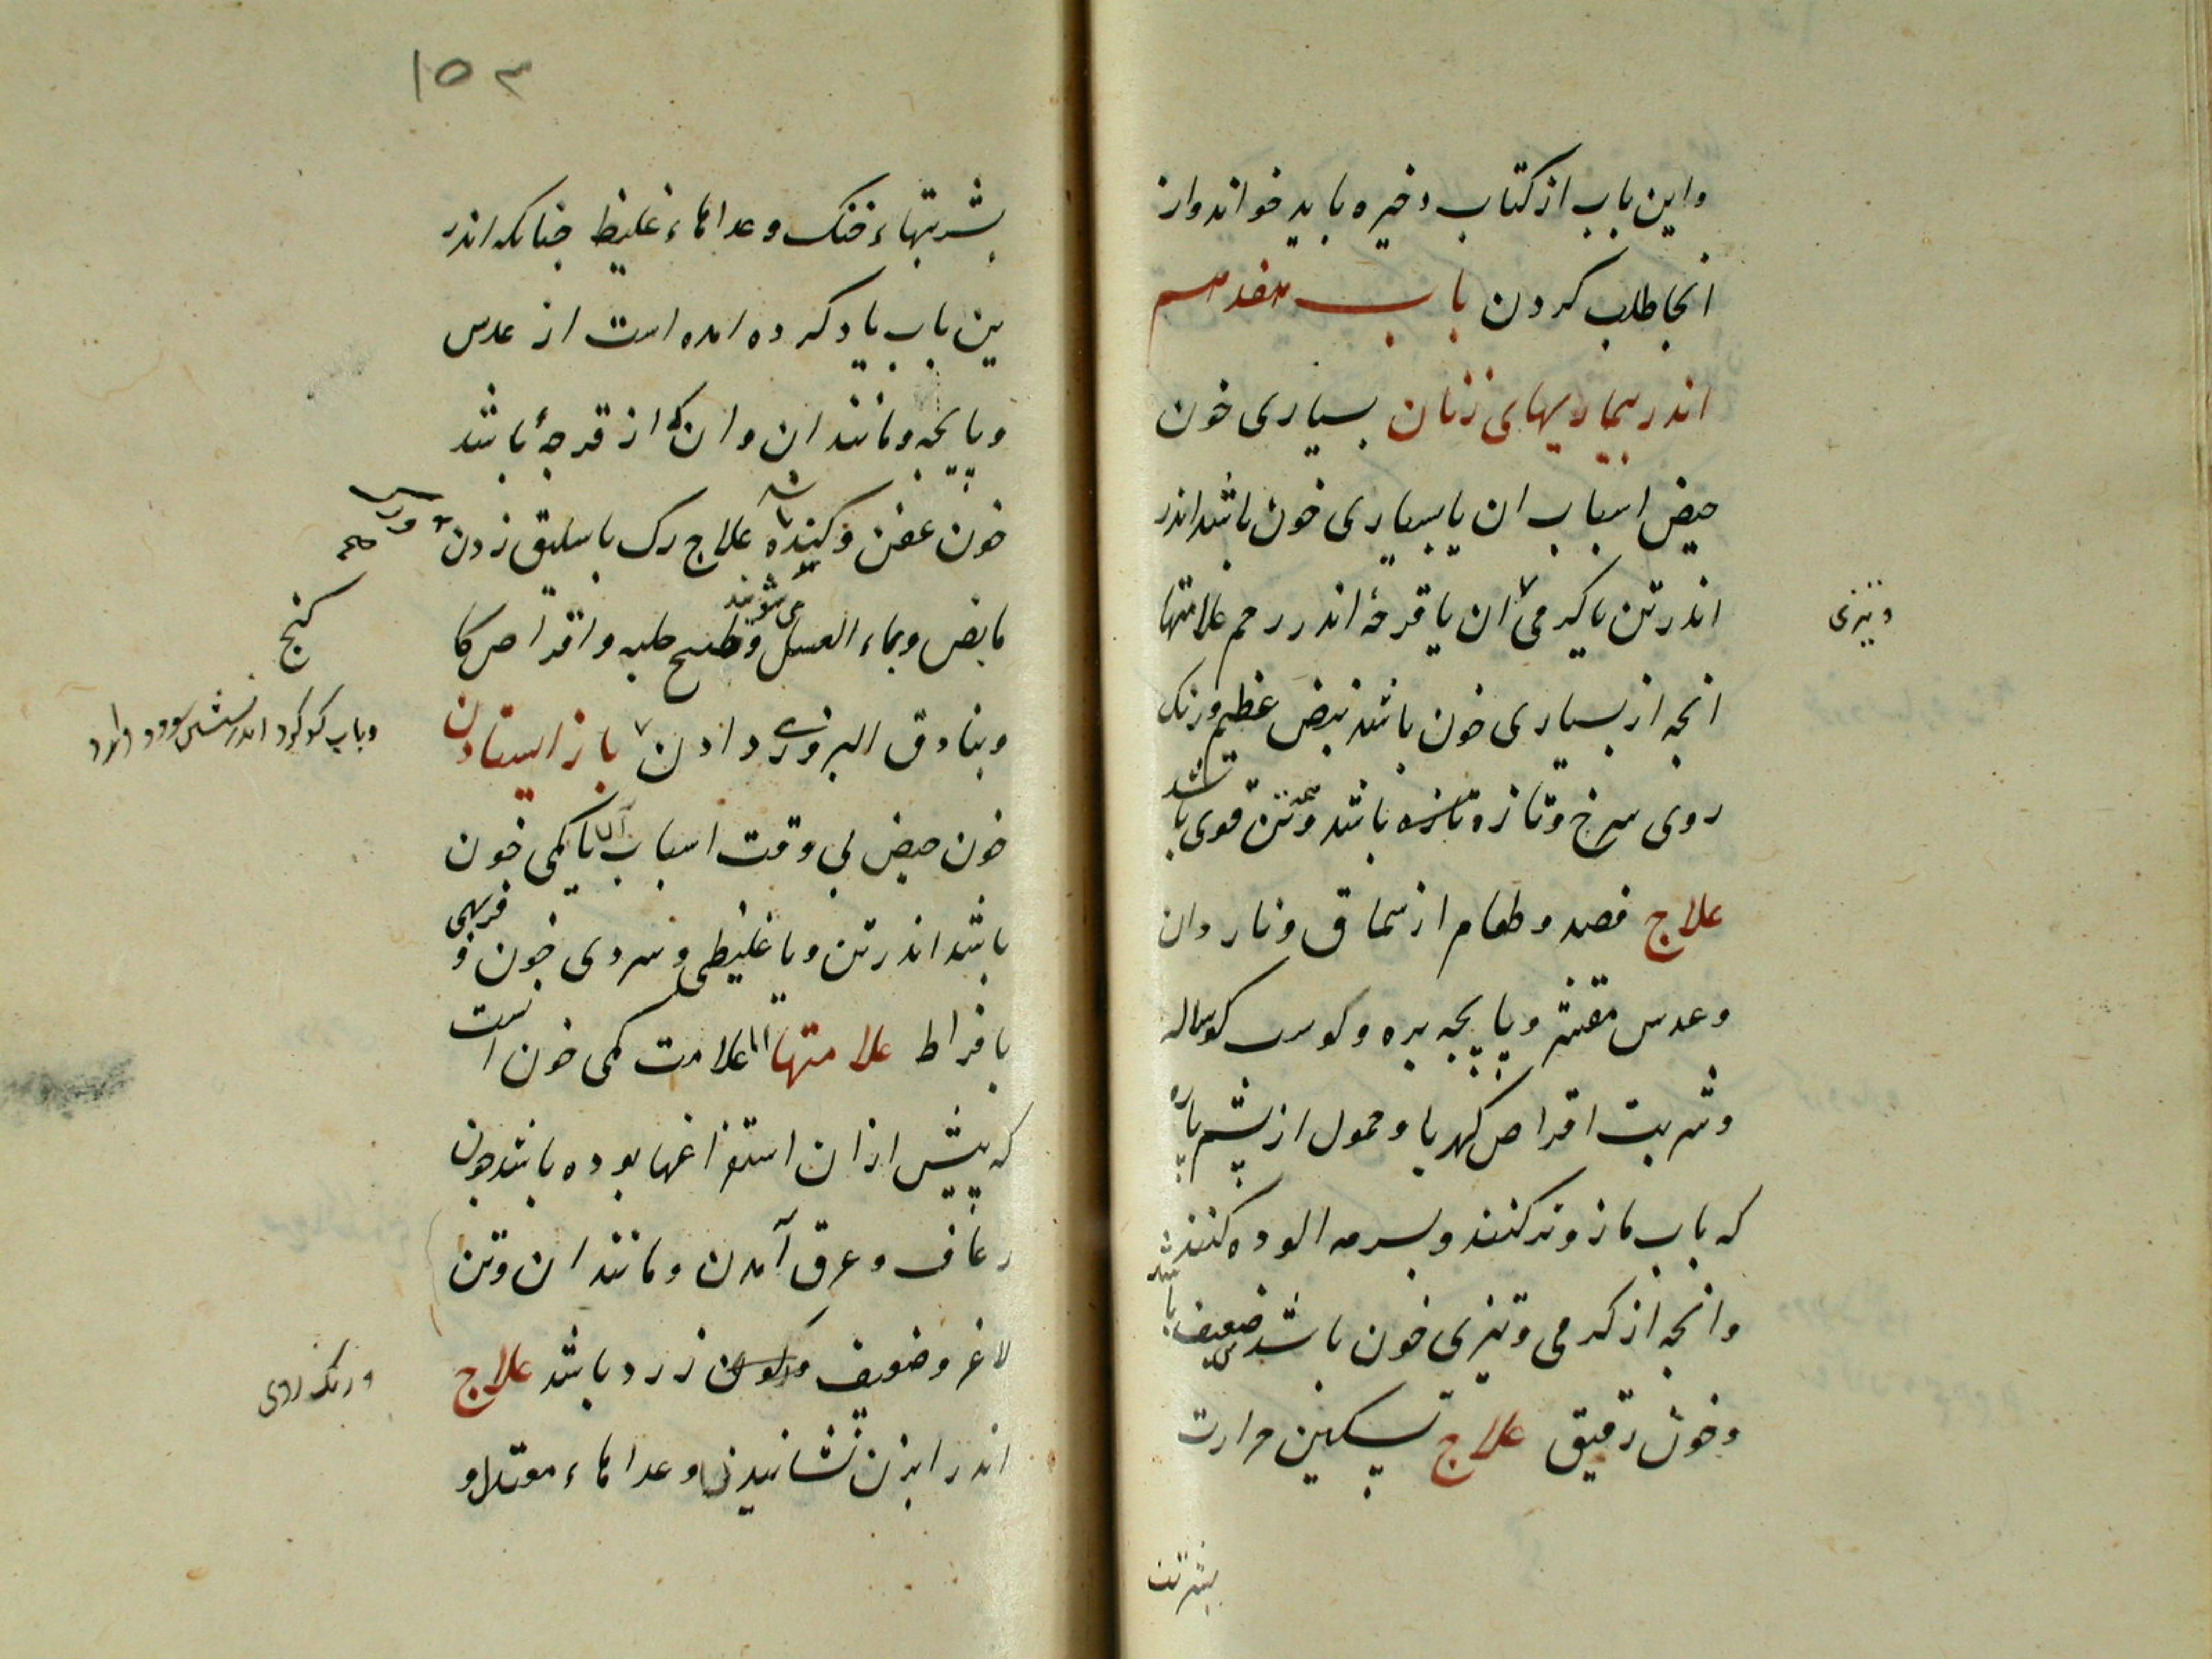 واین باب از کتاب ذخیره باید خواند واز
انجا طلب کردن باب هفدهم
اندر بیماریهای زنان بسیاری خون
حیض اسباب ان یا بسیاری خون باشد اندر
اندر تن یا کرمی ان یا قرحهٔ اندر رحم علامتها
و تیزی
انچه از بسیاری خون باشد نبض عظیم ورنک
روی سرخ وتازه تازه باشد وتن قوی باشد
علاج فصد وطعام از سماق ونار دان
وعدس مقشر وپایچه بره وکوسب کوساله
وشربت اقراص کهربا وحمول از پشم پاره
که باب مازو تر کنند وبسرمه الوده کنند
وانچه از کرمی وتیزی خون باشد ضعیف باشد
وخون رقیق علاج تسکین حرارت
بشربت
۱۵۳
بشربتهاء خنک وغداهاء غلیظ جنانکه اندر
ین باب یاد کرده امده است از عدس
وپایچه ومانند ان وان که از قرحهٔ باشد
خون عفن وکنده باشد علاج رک باسلیق زدن
مابض وبماء العسل وطبیخ حلبه واقراص کا
می شویند
کنج
وبناوق البزوری دادن باز ایستادن
وباب کوکرد اندر نشستن سود دارد
خون حیض بی وقت اسباب ان یا کمی خون
باشد اندر تن ویا غلیظی وسردی خون و فربهی
بافراط علامتها اما علامت کمی خون انست
که پیش ازان استفراغها بوده باشد جون
رعاف وعرق آمدن ومانند ان وتن
لاغر وضعیف زرد باشد علاج
ورنک روی
اندر ابزن نشانیدن وغداهاء معتدل و